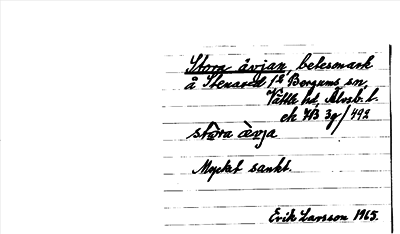 Stora ävjan, betesmark
å Stenared 1/2, Bergums sn,
Vättle hd, Älvsb. l.
ek 7B 3g/492
stora ävja
Mycket sankt.
Erik Larsson 1965.